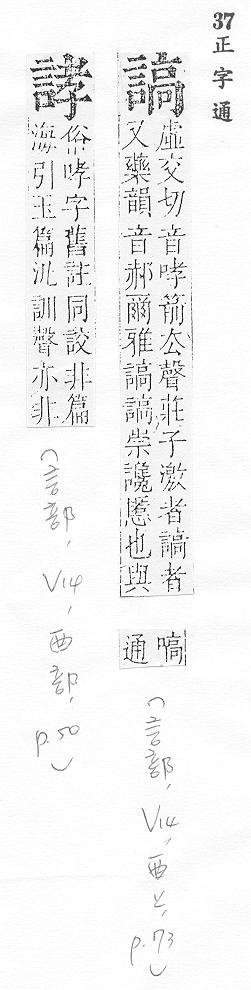 37正字通
謞
虛交切音哮箭去聲莊子激者謞者
又藥韻音郝爾雅謞謞崇讒慝也與
嗃
通
(言部, V14, 酉上, p.73)
誟
俗哮字舊註同詨非篇
海引玉篇汎訓聲亦非
(言部, V14, 酉部, p.50)